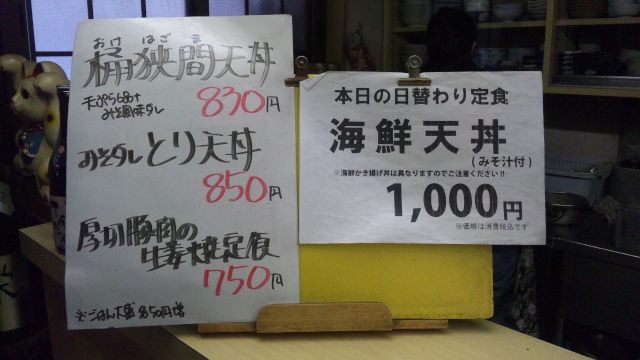 おけ はざま
桶狭間天丼
みそ風味ダレ
830円
みそダレとり天丼
850円
厚切豚肉の
生姜焼定食
750円
本日の日替わり定食
海鮮天丼
(みそ汁付)
※海鮮かき揚げ丼は異なりますのでご注意ください!!
1,000円
※価格は消費税込です